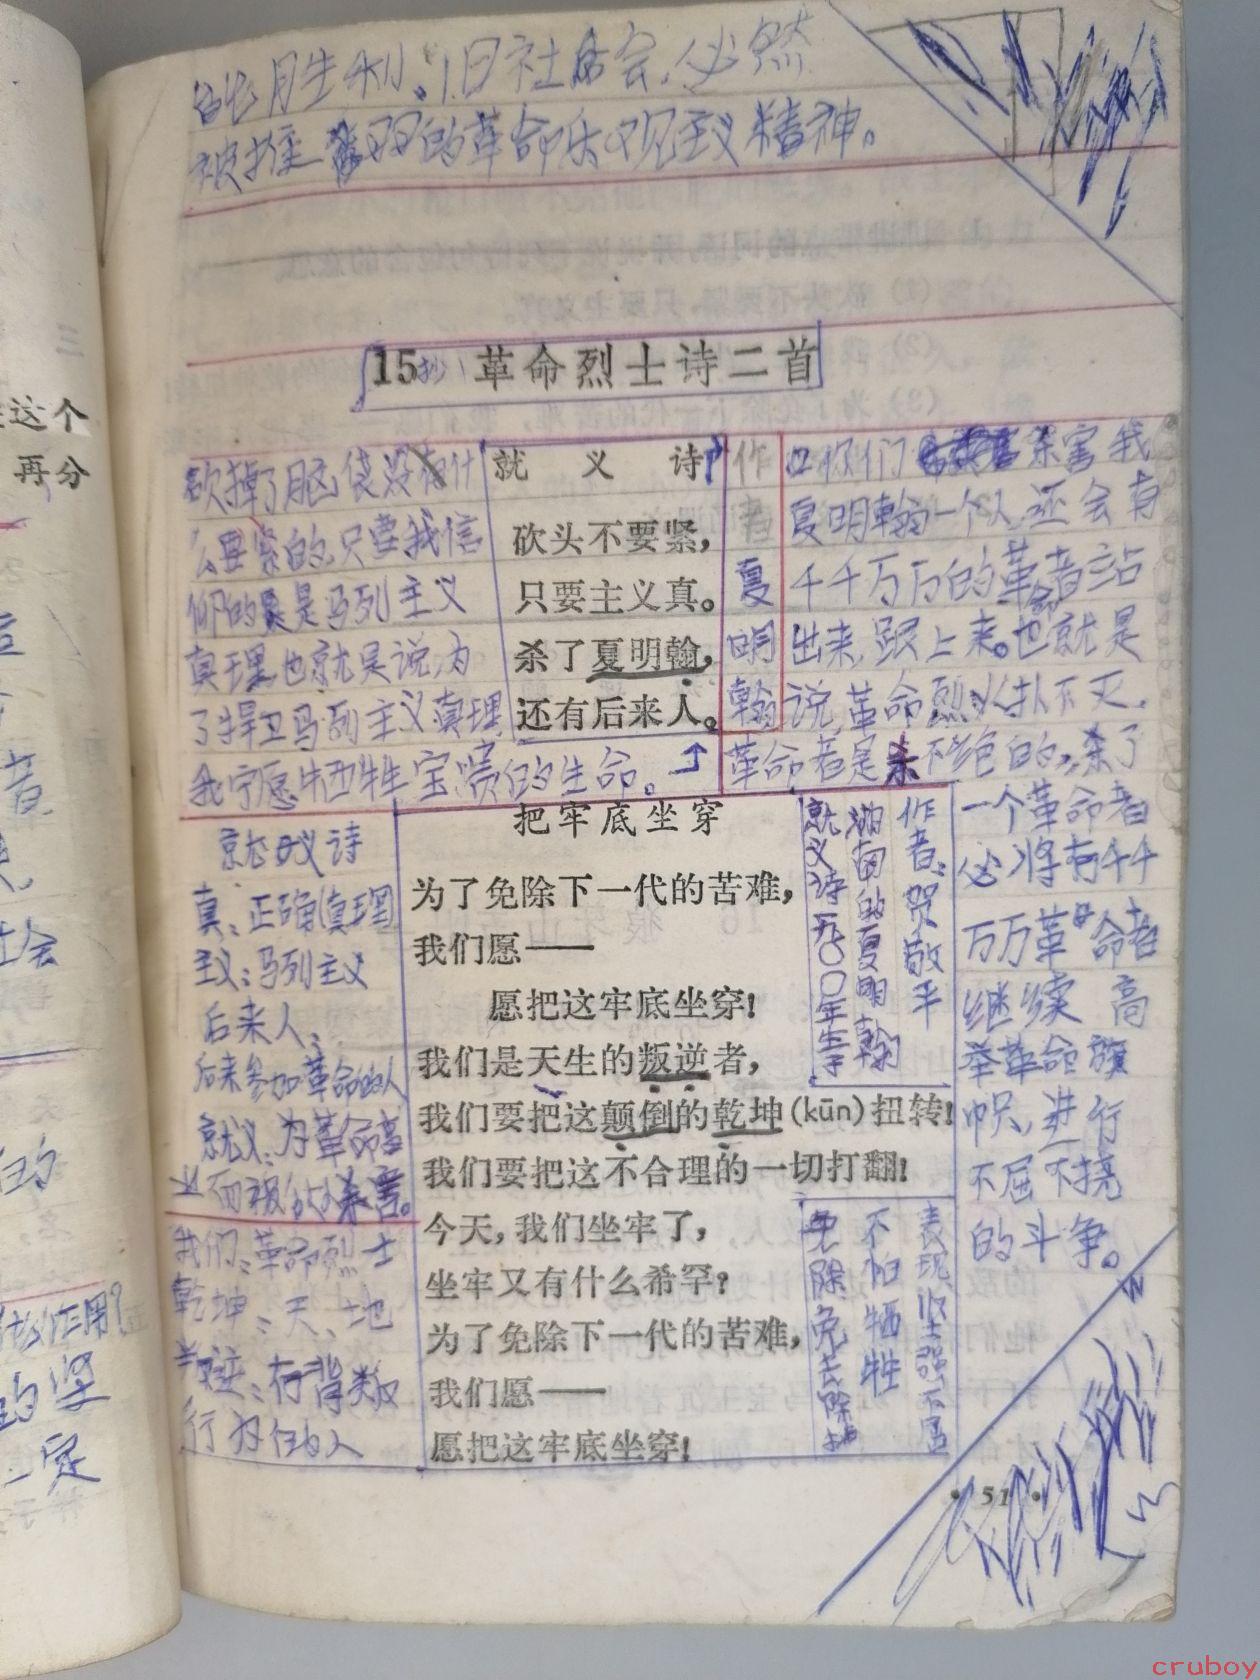 能胜利。旧社会,必然
被推翻的革命乐观主义精神。
15 抄 革命烈士诗二首
就义诗
砍头不要紧,
只要主义真。
杀了夏明翰,
还有后来人。
作者夏明翰
砍掉了脑袋没有什
么要紧的,只要我信
仰的是马列主义
真理,也就是说,为
了捍卫马列主义真理
我宁愿牺牲宝贵的生命。
你们杀害我
夏明翰一个人,还会有
千千万万的革命者站
出来,跟上来。也就是
说,革命烈火扑不灭,
革命者是杀不绝的,杀了
一个革命者
必将有千千
万万革命者
继续高
举革命旗
帜,进行
不屈不挠
的斗争。
把牢底坐穿
为了免除下一代的苦难,
我们愿——
愿把这牢底坐穿!
我们是天生的叛逆者,
我们要把这颠倒的乾坤(kūn)扭转!
我们要把这不合理的一切打翻!
今天,我们坐牢了,
坐牢又有什么希罕?
为了免除下一代的苦难,
我们愿——
愿把这牢底坐穿!
作者:贺敬平
湖南的夏明翰
就义诗一九〇〇年生于
表现坚强不屈
不怕牺牲
免除免去除掉
就义诗
真:正确(真理)
主义:马列主义
后来人:
后来参加革命的人
就义:为革命事
业而被敌人杀害。
我们:革命烈士
乾坤:天、地
叛逆:有背叛
行为的人
· 51 ·
这个
再分
者
社会
的
什么作用?
的坚
定
cruboy